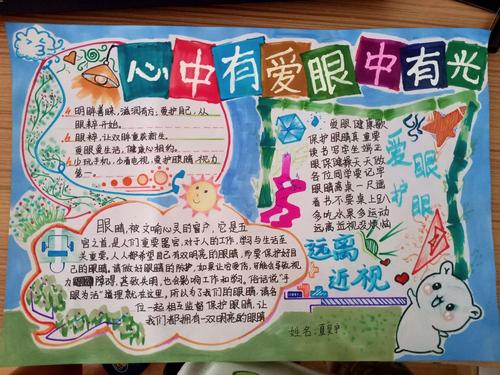 心中有爱眼中有光
明眸善睐,滋润有方;爱护自己,从
眼眸开始。
眼眸,让双眸重获新生。
要眼爱生活,健康心相约。
少玩手机,少看电视,爱护眼睛,视力
第一。
爱眼健康歌
保护眼睛真重要
读书写字坐端正
眼保健操天天做
各位同学要记牢
眼睛离桌一尺遥
看书不要桌上趴
多吃水果多运动
远离近视没烦恼
爱护眼睛
远离
近视
眼睛,被文喻心灵的窗户,它是五
官之首,是人们重要器官,对于人的工作,学习与生活至
关重要,人人都希望自己有双明亮的眼睛,那要保护好自
己的眼睛,请做好眼睛的防护,如果让它受伤,可能会导致视力
障碍,甚致失明,也会影响工作和学习,俗话说"手
眼为活"道理就在这里,所以为了我们的眼睛,请各
位一起相互监督保护眼睛,让
我们都拥有一双明亮的眼睛
姓名: